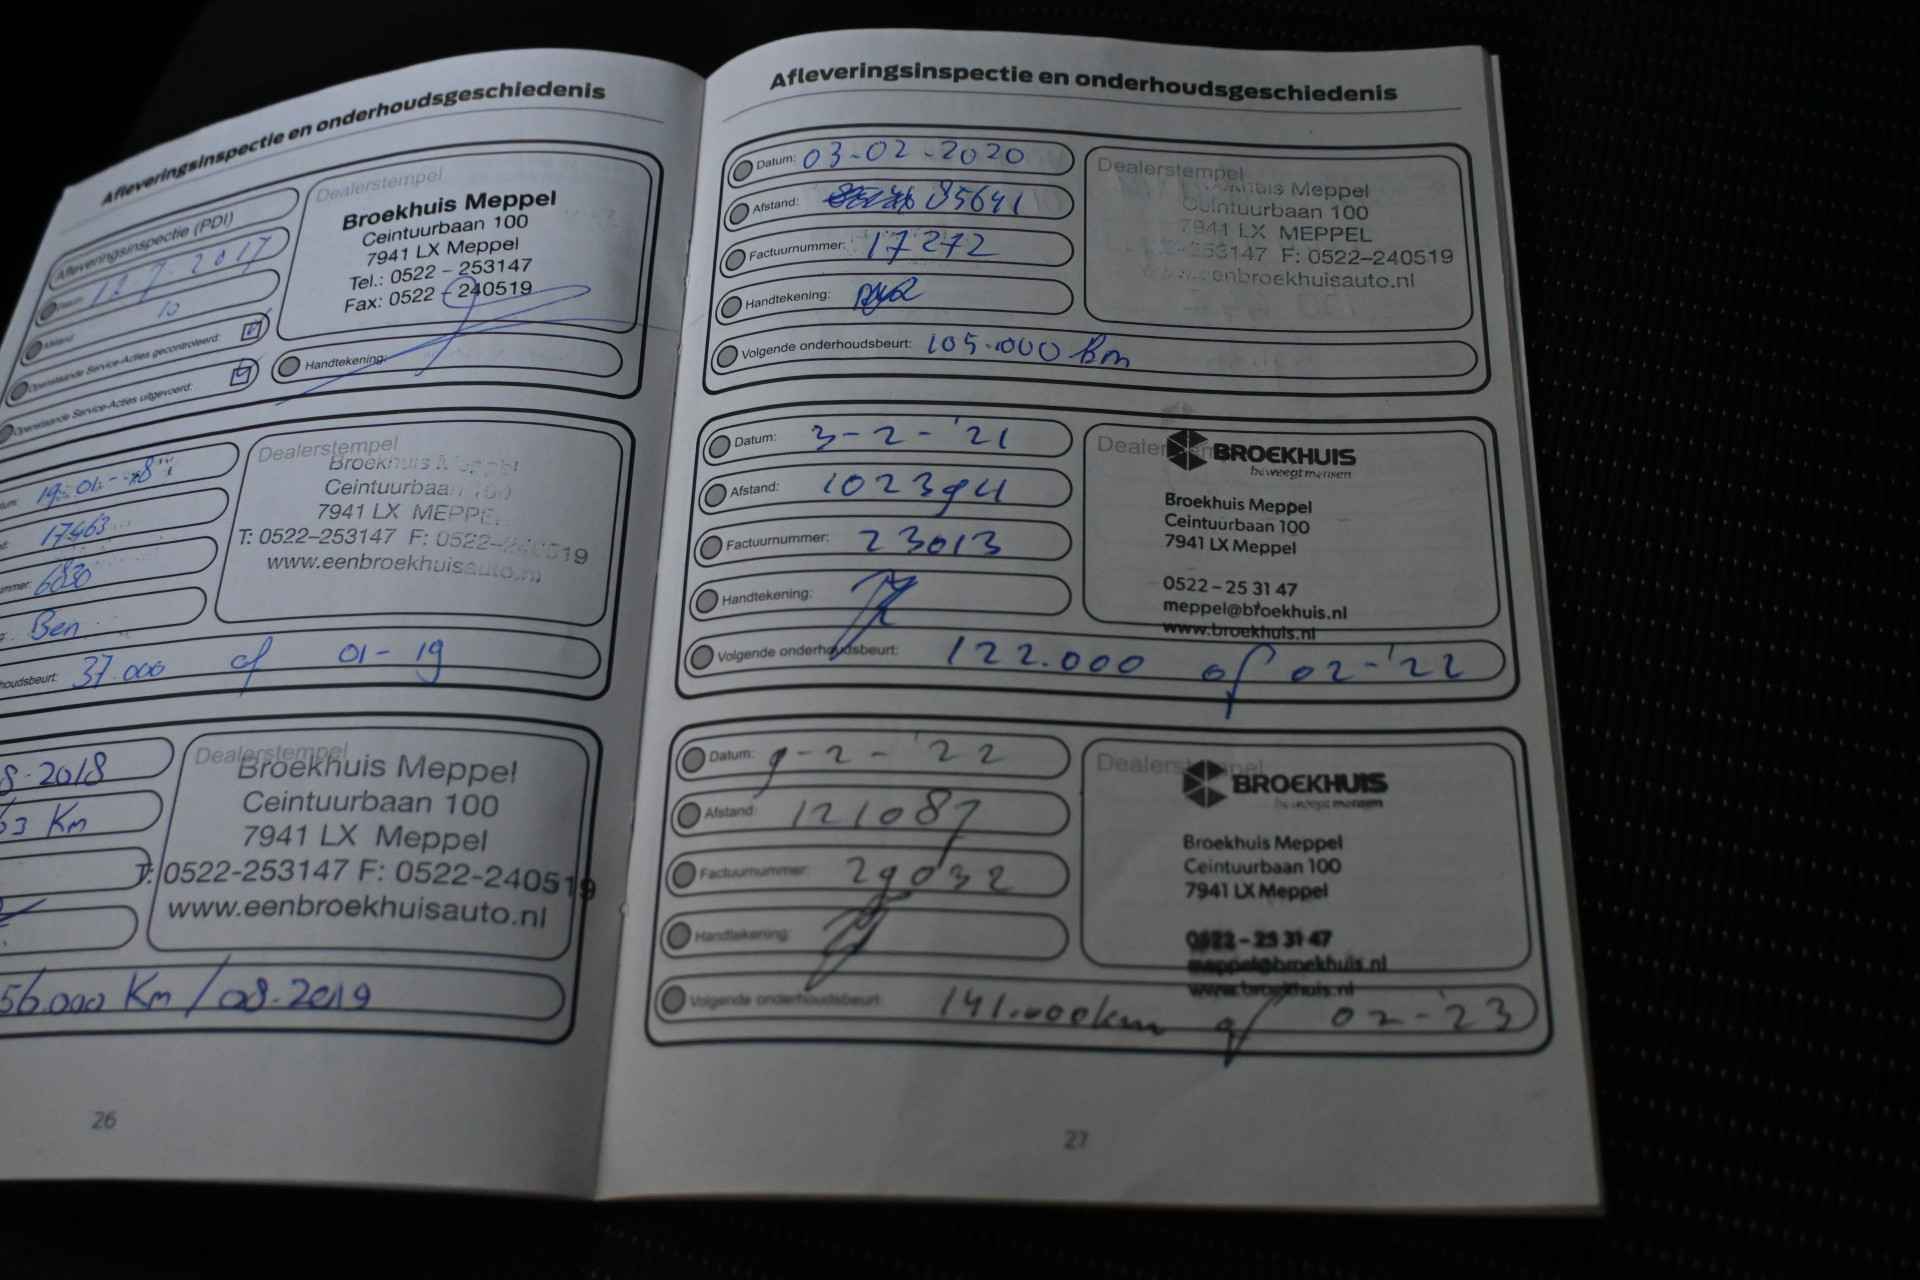 Afleveringsinspectie en onderhoudsgeschiedenis
Afleveringsinspectie (PDI)
Datum: 12-7-2017
Afstand: 10
Openstaande Service-Acties gecontroleerd:
Openstaande Service-Acties uitgevoerd:
Dealerstempel
Broekhuis Meppel
Ceintuurbaan 100
7941 LX Meppel
Tel.: 0522 – 253147
Fax: 0522 – 240519
Handtekening:
tum: 19-01-
17463
mmer: 6830
Ben
Dealerstempel
Broekhuis Meppel
Ceintuurbaan 100
7941 LX MEPPEL
T: 0522–253147 F: 0522–240519
www.eenbroekhuisauto.nl
houdsbeurt: 37.000 of 01-19
8-2018
63 Km
Dealerstempel
Broekhuis Meppel
Ceintuurbaan 100
7941 LX Meppel
T: 0522-253147 F: 0522-240519
www.eenbroekhuisauto.nl
56.000 Km / 08-2019
26
Afleveringsinspectie en onderhoudsgeschiedenis
Datum: 03-02-2020
Afstand: 85641
Factuurnummer: 17272
Handtekening:
Dealerstempel
khuis Meppel
Ceintuurbaan 100
7941 LX MEPPEL
253147 F: 0522–240519
eenbroekhuisauto.nl
Volgende onderhoudsbeurt: 105.000 Km
Datum: 3-2-'21
Afstand: 102394
Factuurnummer: 23013
Handtekening:
Dealerstempel
BROEKHUIS
beweegt mensen
Broekhuis Meppel
Ceintuurbaan 100
7941 LX Meppel
0522 – 25 31 47
meppel@broekhuis.nl
www.broekhuis.nl
Volgende onderhoudsbeurt: 122.000 of 02-'22
Datum: 9-2-'22
Afstand: 121087
Factuurnummer: 29032
Handtekening:
Dealerstempel
BROEKHUIS
beweegt mensen
Broekhuis Meppel
Ceintuurbaan 100
7941 LX Meppel
0522 – 25 31 47
meppel@broekhuis.nl
www.broekhuis.nl
Volgende onderhoudsbeurt: 141.000km of 02-'23
27